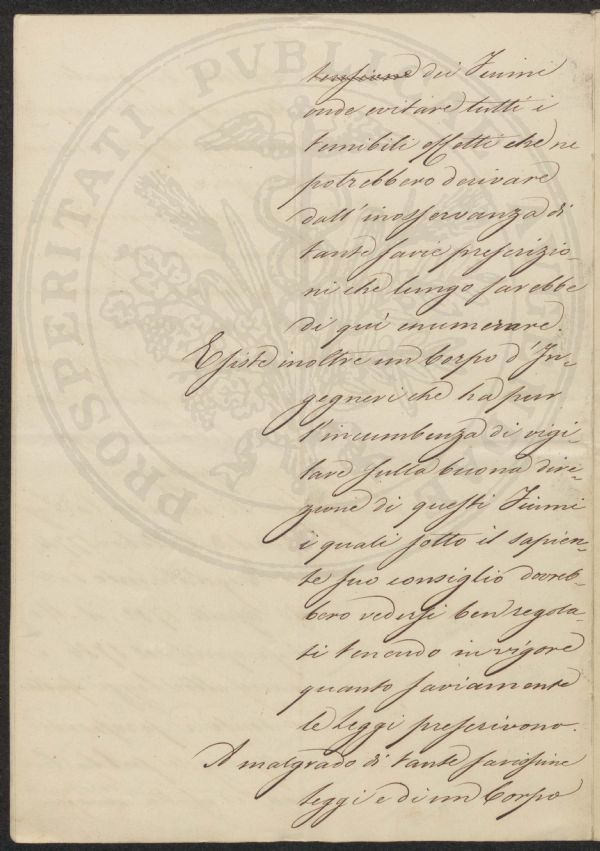 ~~tensione~~ dei Fiumi
onde evitare tutti i
temibili effetti che ne
potrebbero derivare
dall'inosservanza di
tante savie prescrizio-
ni che lungo sarebbe
di qui enumerare.
Esiste inoltre un Corpo d'In-
gegneri che ha pur
l'incumbenza di vigi-
lare sulla buona dire-
zione di questi Fiumi
i quali sotto il sapien-
te suo consiglio dovreb-
bero vedersi ben regola-
ti tenendo in vigore
quanto saviamente
le Leggi prescrivono.
A malgrado di tante savissime
Leggi e di un Corpo
PROSPERITATI PUBLICAE